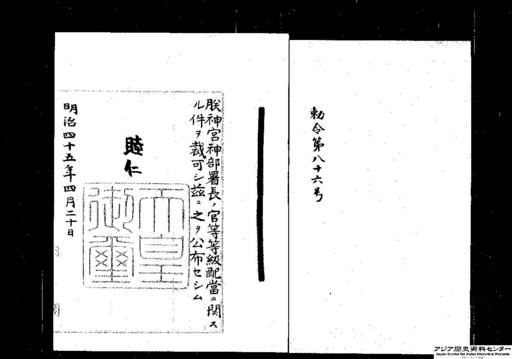 勅令第八十六号
朕神宮神部署長ノ官等等級配當ニ関ス
ル件ヲ裁可シ茲ニ之ヲ公布セシム
睦仁
天皇
御璽
明治四十五年四月二十日
アジア歴史資料センター
Japan Center for Asian Historical Records